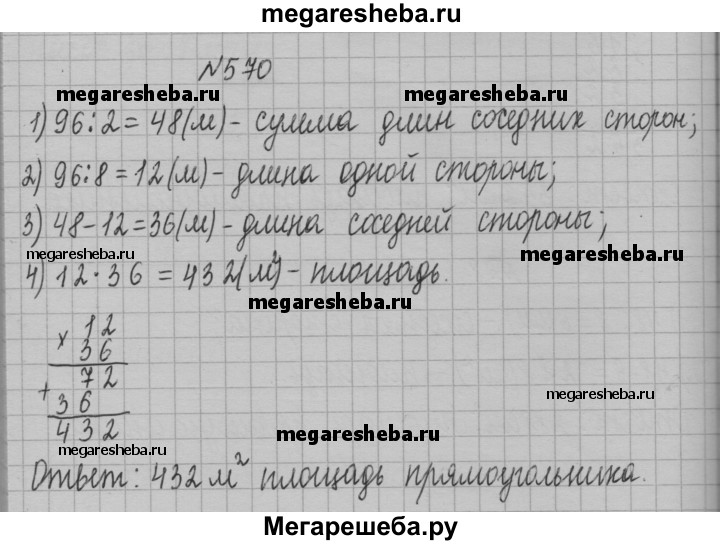 megaresheba.ru
№570
megaresheba.ru megaresheba.ru
1) 96:2=48(м)- сумма длин соседних сторон;
2) 96:8=12(м)- длина одной стороны;
3) 48-12=36(м)-длина соседней стороны;
megaresheba.ru megaresheba.ru
4) 12·36=432(м²)- площадь.
megaresheba.ru
× 12
36
+ 72
36
megaresheba.ru
432
megaresheba.ru megaresheba.ru
Ответ: 432 м² площадь прямоугольника.
Мегарешеба.ру